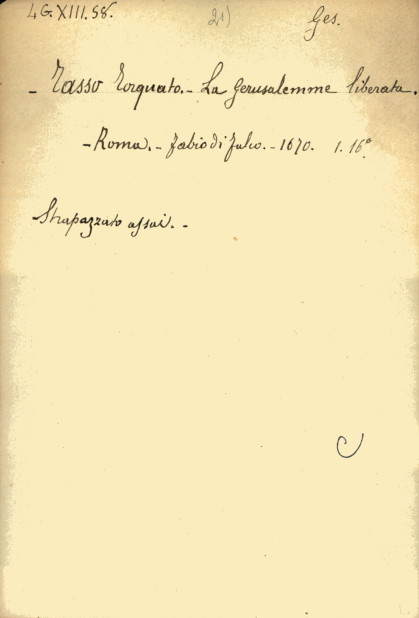 4G.XIII.58. 21) Ges.
- Tasso Torquato. - La Gerusalemme liberata.
- Roma. - Fabio di Falco. - 1670. 1. 16°
Strapazzato assai. -
C